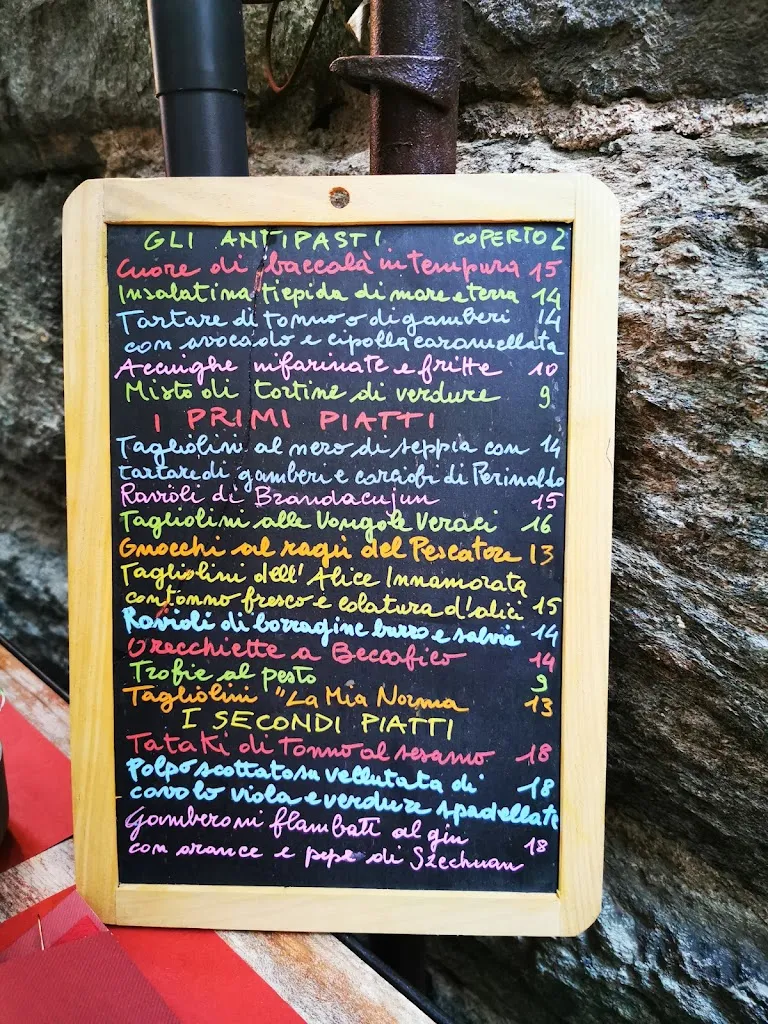 GLI ANTIPASTI COPERTO 2
Cuore di baccalà in tempura 15
Insalatina tiepida di mare e terra 14
Tartare di tonno o di gamberi 14
con avocado e cipolla caramellata
Acciughe infarinate e fritte 10
Misto di tortine di verdure 9
I PRIMI PIATTI
Tagliolini al nero di seppia con 14
tartare di gamberi e carciofi di Perinaldo
Ravioli di Brandacujun 15
Tagliolini alle Vongole Veraci 16
Gnocchi al ragù del Pescatore 13
Tagliolini dell'Alice Innamorata
con tonno fresco e colatura d'alici 15
Ravioli di borragine burro e salvia 14
Orecchiette a Beccafico 14
Trofie al pesto 9
Tagliolini "La Mia Norma 13
I SECONDI PIATTI
Tataki di Tonno al sesamo 18
Polpo scottato su vellutata di 18
cavolo viola e verdure spadellate
Gamberoni flambati al gin
con arance e pepe di Szechuan 18